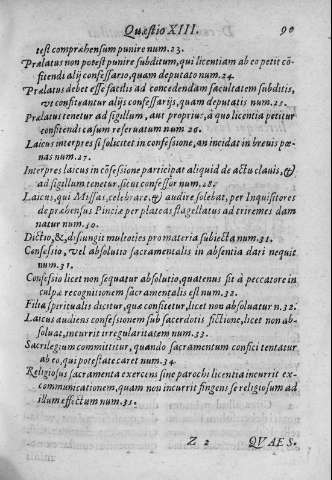 Quæstio XIII. 90
test compræhensum punire num.23.
Prælatus non potest punire subditum, qui licentiam ab eo petit cõ-
fitendi alij confessario, quam deputato num.24.
Prælatus debet esse facilis ad concedendam facultatem subditis,
vt confiteantur alijs confessarijs, quam deputatis num.25.
Prælatus tenetur ad sigillum, aut proprius, a quo licentia petitur
confitendi casum reseruatum num 26.
Laicus interpres si solicitet in confessione, an incidat in breuis pœ-
nas num.27.
Interpres laicus in cõfessione participat aliquid de actu clauis, &
ad sigillum tenetur, sicut confessor num.28.
Laicus, qui Missas, celebrare, & audire solebat, per Inquisitores
depræhensus Pinciæ per plateas flagellatus ad triremes dam
natur num.30.
Dictio, &, disiungit multoties pro materia subiecta num.31.
Confessio, vel absolutio sacramentalis in absentia dari nequit
num.31.
Confessio licet non sequatur absolutio, quatenus fit à peccatore in
culpæ recognitionem sacramentalis est num.32.
Filia spiritualis dicitur, quæ confitetur, licet non absoluatur n.32.
Laicus audiens confessionem sub sacerdotis fictione, licet non ab-
soluat, incurrit irregularitatem num.33.
Sacrilegium committitur, quando sacramentum confici tentatur
ab eo, qui potestate caret num.34.
Religiosus sacramenta exercens sine parochi licentia incurrit ex-
communicationem, quam non incurrit fingens se religiosum ad
illum effectum num.35.
Z 2 QVAES.